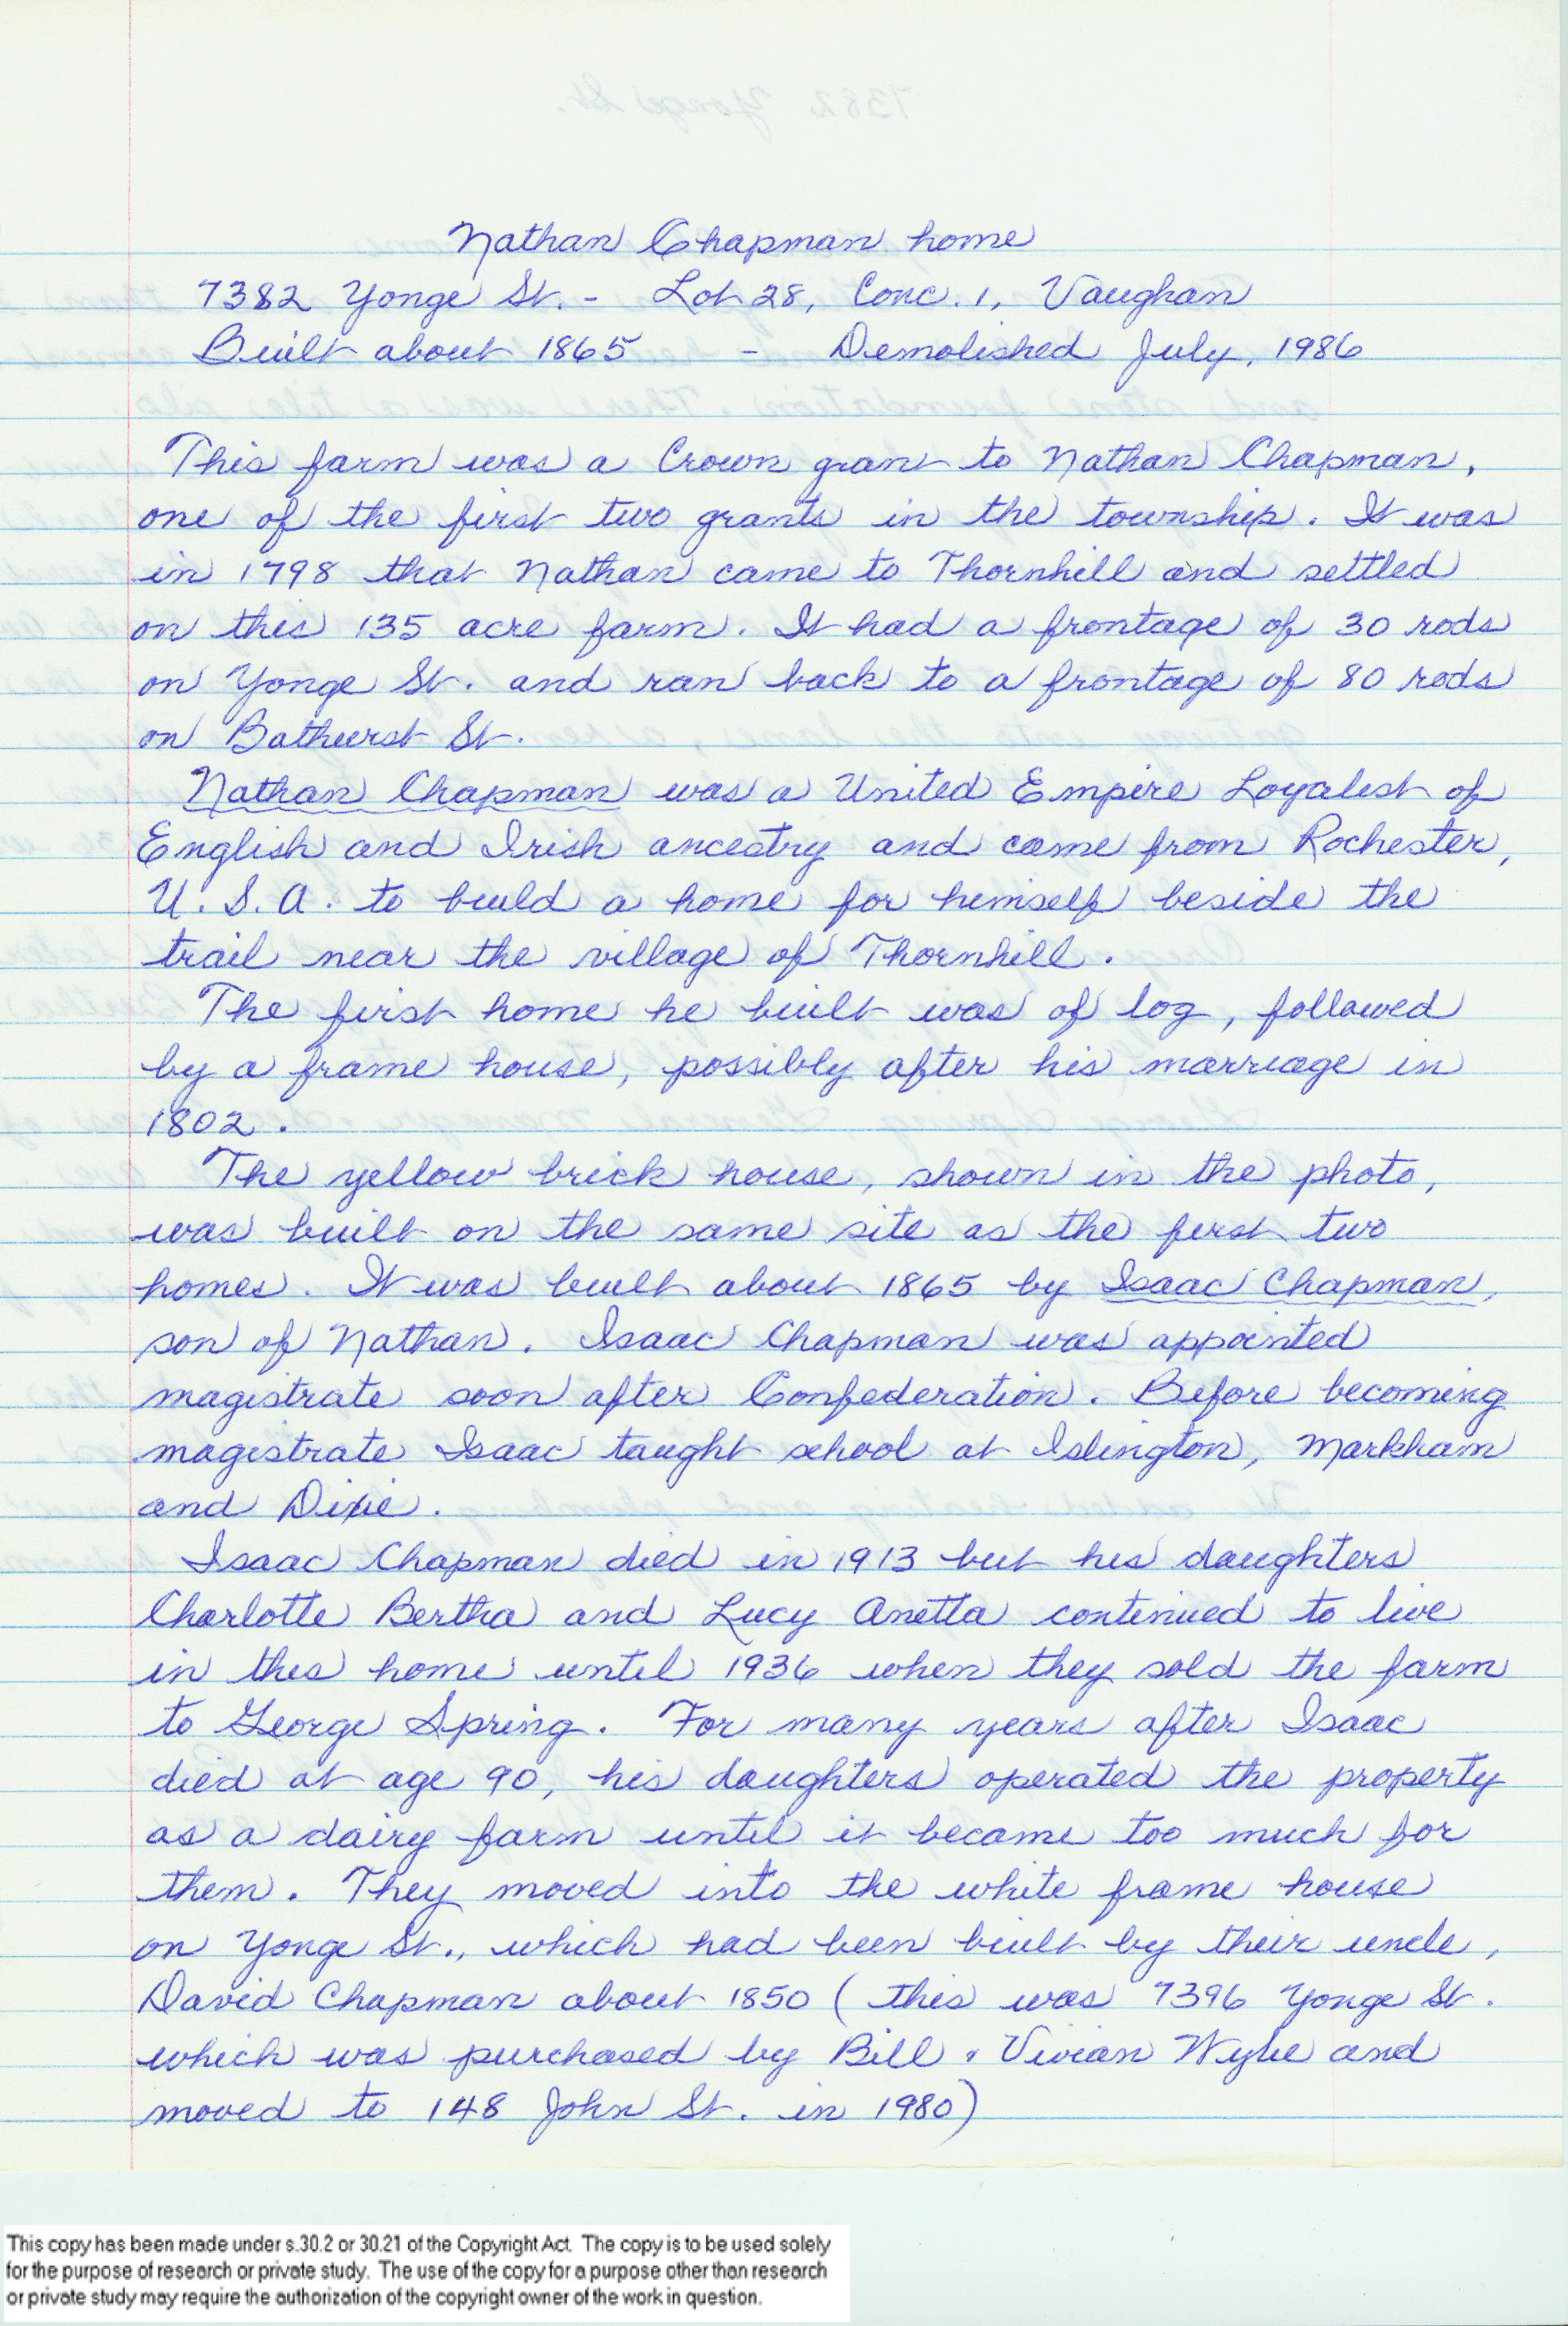 Nathan Chapman home
7382 Yonge St. - Lot 28, Conc. 1, Vaughan
Built about 1865 - Demolished July, 1986
This farm was a Crown grant to Nathan Chapman,
one of the first two grants in the township. It was
in 1798 that Nathan came to Thornhill and settled
on this 135 acre farm. It had a frontage of 30 rods
on Yonge St. and ran back to a frontage of 80 rods
on Bathurst St.
Nathan Chapman was a United Empire Loyalist of
English and Irish ancestry and came from Rochester,
U.S.A. to build a home for himself beside the
trail near the village of Thornhill.
The first home he built was of log, followed
by a frame house, possibly after his marriage in
1802.
The yellow brick house, shown in the photo,
was built on the same site as the first two
homes. It was built about 1865 by Isaac Chapman,
son of Nathan. Isaac Chapman was appointed
magistrate soon after Confederation. Before becoming
magistrate Isaac taught school at Islington, Markham
and Dixie.
Isaac Chapman died in 1913 but his daughters
Charlotte Bertha and Lucy Anetta continued to live
in this home until 1936 when they sold the farm
to George Spring. For many years after Isaac
died at age 90, his daughters operated the property
as a dairy farm until it became too much for
them. They moved into the white frame house
on Yonge St., which had been built by their uncle,
David Chapman about 1850 (this was 7396 Yonge St.
which was purchased by Bill & Vivian Wylie and
moved to 148 John St. in 1980)
This copy has been made under s.30.2 or 30.21 of the Copyright Act. The copy is to be used solely
for the purpose of research or private study. The use of the copy for a purpose other than research
or private study may require the authorization of the copyright owner of the work in question.